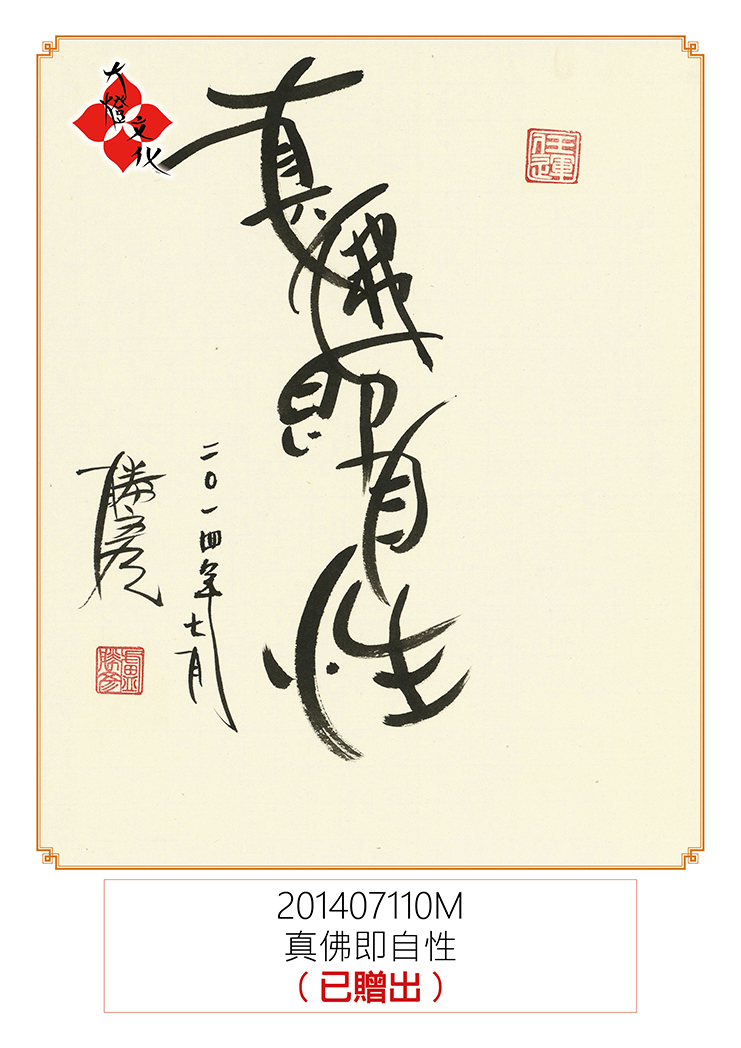 大燈文化
任運
真佛即自性
二〇一四年七月
勝彥
盧勝彥
201407110M
真佛即自性
（已贈出）